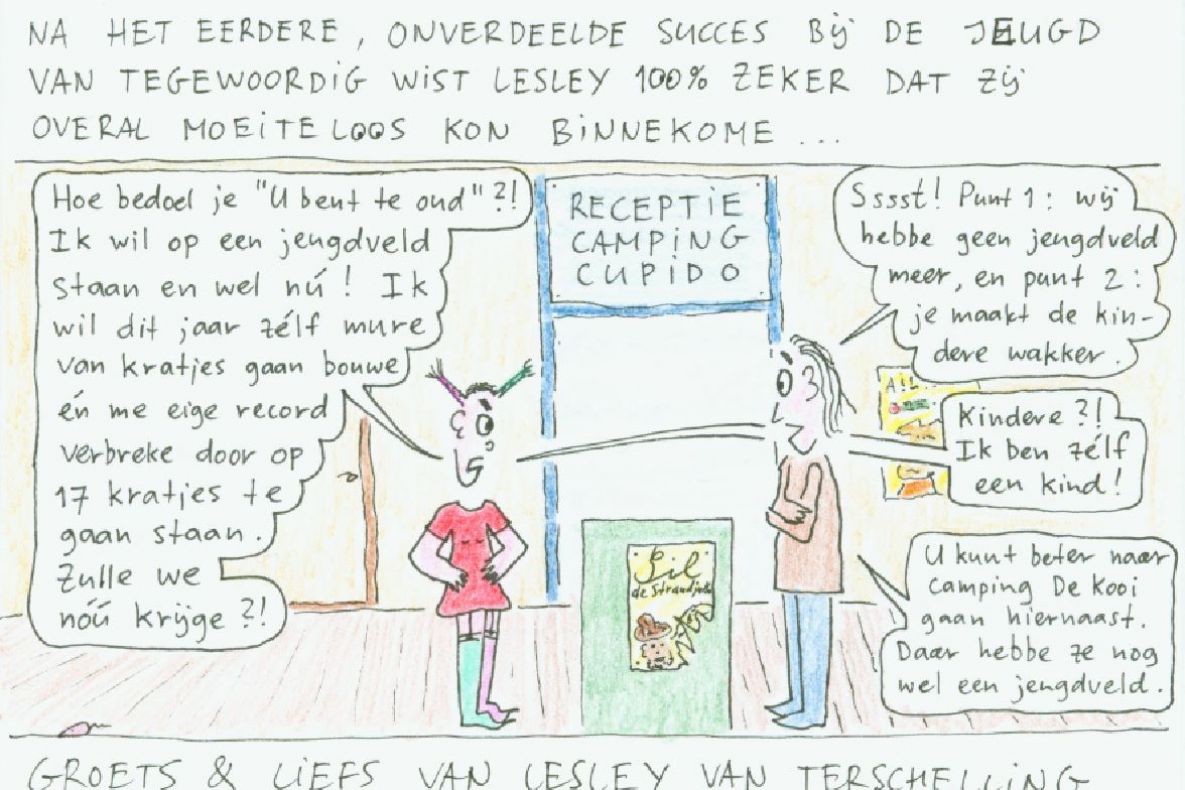 NA HET EERDERE, ONVERDEELDE SUCCES BIJ DE JEUGD
VAN TEGEWOORDIG WIST LESLEY 100% ZEKER DAT ZIJ
OVERAL MOEITELOOS KON BINNEKOME ...
Hoe bedoel je "U bent te oud"?!
Ik wil op een jeugdveld
staan en wel nú! Ik
wil dit jaar zélf mure
van kratjes gaan bouwe
én me eige record
verbreke door op
17 kratjes te
gaan staan.
Zulle we
nóú krijge?!
RECEPTIE
CAMPING
CUPIDO
Sssst! Punt 1: wij
hebbe geen jeugdveld
meer, en punt 2:
je maakt de kin-
dere wakker.
Kindere?!
Ik ben zélf
een kind!
U kunt beter naar
camping De Kooi
gaan hiernaast.
Daar hebbe ze nog
wel een jeugdveld.
Pil
de Strandjutter
GROETS & LIEFS VAN LESLEY VAN TERSCHELLING